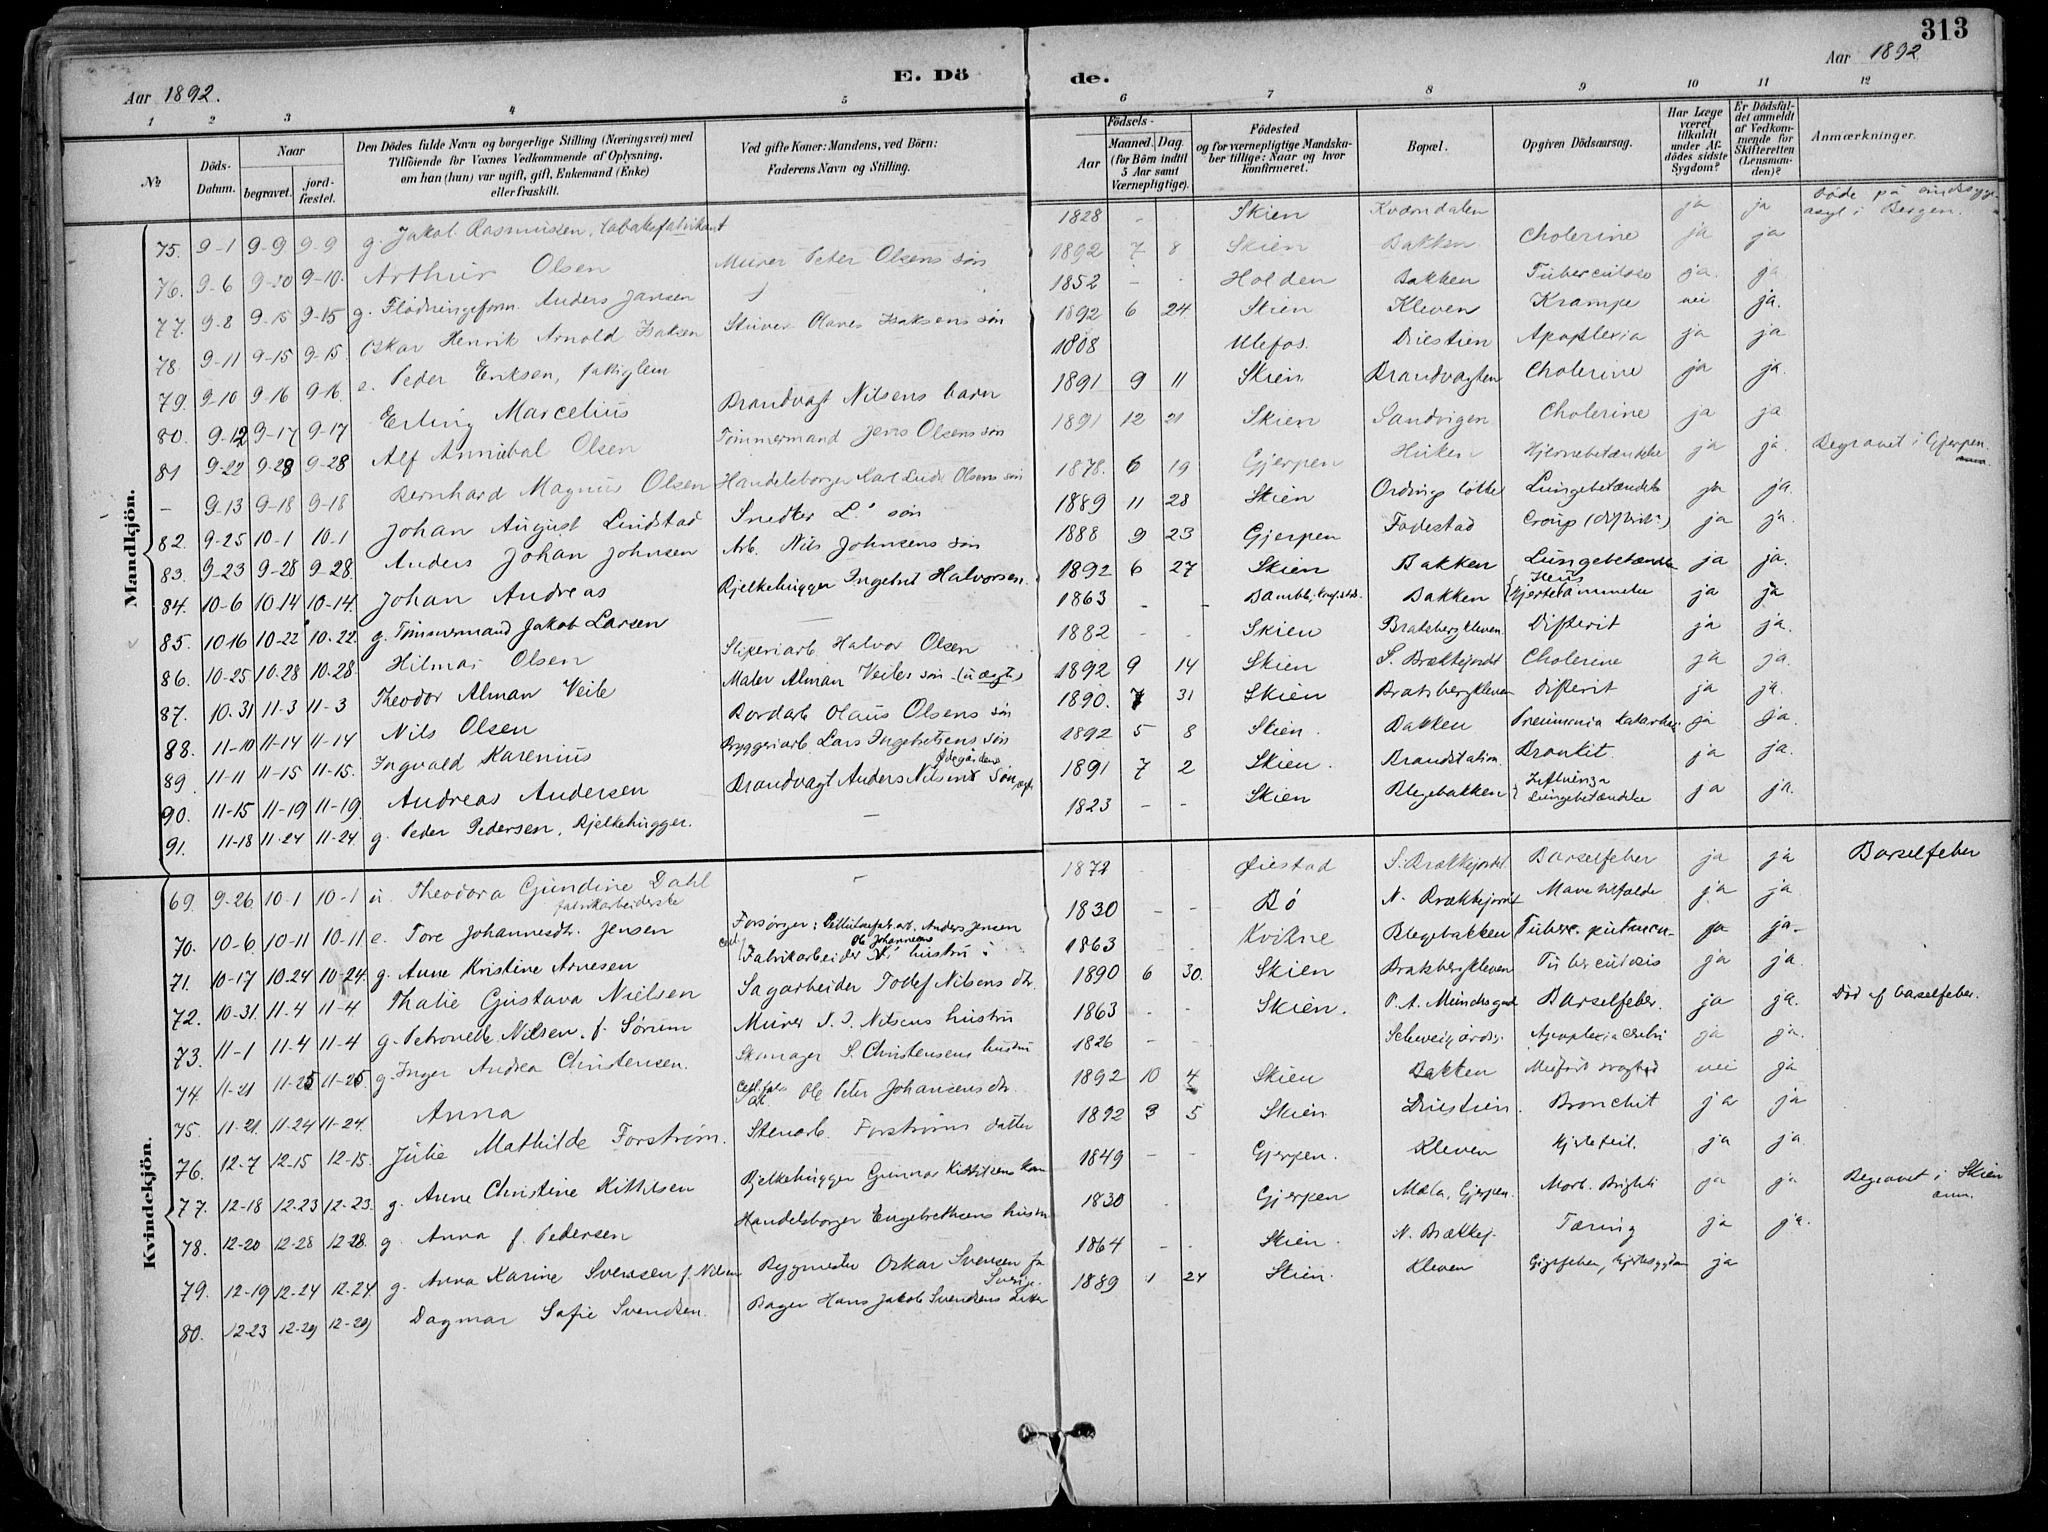 313
Aar 1892.
E. Dö
de.
Aar 1892
1 2 3 4 5 6 7 8 9 10 11 12
№
Döds-Datum.
Naar
begravet.
jord-fæstet.
Den Dödes fulde Navn og borgerlige Stilling (Næringsvei) med
Tilföiende for Voxnes Vedkommende af Oplysning,
om han (hun) var ugift, gift, Enkemand (Enke)
eller fraskilt.
Ved gifte Koner: Mandens, ved Börn:
Faderens Navn og Stilling.
Födsels-
Aar
Maaned. Dag.
(for Börn indtil
5 Aar samt
Værnepligtige).
Födested
og for værnepligtige Mandska-
ber tillige: Naar og hvor
konfirmeret.
Bopæl.
Opgiven Dödsaarsag.
Har Læge
været
tilkaldt
under Af-
dödes sidste
Sygdom?
Er Dödsfal-
det anmeldt
af Vedkom-
mende for
Skifteretten
(Lensman-
den)?
Anmærkninger.
Mandkjön.
75. 9-1 9-9 9-9 g. Jakob Rasmussen, tobaksfabrikant 1828 - - Skien Kværndalen ja ja Døde på sindssyge-
asyl i Bergen.
76. 9-6 9-10 9-10. Arthur Olsen Murer Peter Olsens søn 1892 7 8 Skien Bakken Cholerine ja ja
77. 9-8 9-15 9-15 g. Flødningsform. Anders Jansen 1852 - - Holden Bakken Tuberculose ja. ja
78. 9-11 9-15 9-15. Oskar Henrik Arnold Isaksen Olaves Isaksens søn 1892 6 24 Skien Kleven Krampe nei ja.
79. 9-10 9-16 9-16. e. Peder Eriksen, fattiglem 1808 Ulefos. Duestien Apoplexia ja ja
80. 9-12 9-17 9-17 Erling Marcelius Brandvagt Nilsens barn 1891 9 11 Skien Brandvagten Cholerine ja ja.
81 9-22 9-28 9-28 Alf Annibal Olsen Tømmermand Jens Olsens søn 1891 12 21 Skien Sandvigen Cholerine ja ja
- 9-13 9-18 9-18 Bernhard Magnus Olsen Handelsborger Karl Ludv. Olsens søn 1878. 6 19 Gjerpen Hjernebetændelse ja ja. Begravet i Gjerpen.
82. 9-25 10-1 10-1 Johan August Lindstad Snedker L.s søn 1889 11 28 Skien Lungebetændelse ja ja.
83. 9-23 9-28 9-28. Anders Johan Johnsen Arb. Nils Johnsens søn 1888 9 23 Gjerpen Fodestad Croup (difterit) ja ja.
84. 10-6 10-14 10-14. Johan Andreas Bjelkehugger Ingebret Halvorsen. 1892 6 27 Skien Bakken Lungebetændelse ja ja.
85. 10-16 10-22 10-22. g. Tømmermand Jakob Larsen 1863 - - Bamble, Bakken ja ja
86. 10-25 10-28 10-28. Hilmar Olsen Sliperiarb. Halvor Olsen 1882 - - Skien Bratsbergkleven Difterit ja ja.
87. 10-31 11-3 11-3 Theodor Alman Veile Maler Alman Veiles søn (uægte) 1892 9 14 Skien S. Brækkejordet Cholerine ja ja.
88. 11-10 11-14 11-14 Nils Olsen Bordarb. Olaus Olsens søn 1890. 7 31 Skien Bratsbergkleven difterit ja ja.
89. 11-11 11-15 11-15. Ingvald Karenius Bryggeriarb. Lars Ingebretsens søn 1892 5 8 Skien. Bakken Pneumonia katarrhal. ja ja.
90. 11-15 11-19 11-19. Andreas Andersen Brandvagt Anders Nilsens Ødegården søn 1891 7 2 Skien. Brandstation. Bronkit. ja ja.
91. 11-18 11-24 11-24. g. Peder Pedersen, Bjelkehugger. - 1823 - - Skien Blegebakken Influenza Lungebetændelse ja ja.
Kvindekjön.
69. 9-26. 10-1 10-1 u. Theodora Gundine Dahl fabrikarbeiderske - 1872 - - Øiestad S. Brækkejordet Barselfeber ja ja Barselfeber
70. 10-6. 10-11 10-11 e. Tore Johannesdtr. Jensen Forsørger: Anders Jensen 1830 - - Bø N. Brækkejordet Mavetilfælde ja ja
71. 10-17 10-24 10-24. g. Anne Kristine Arnesen Fabrikarbeider Ole Johannes A.s hustru 1863 - - Kvikne Blegebakken ja ja.
72. 10-31. 11-4 11-4 Thalie Gustava Nielsen Sagarbeider Todef Nilsens dtr. 1890 6 30. Skien Bratsbergkleven Tuberculosis ja ja.
73. 11-1 11-4 11-4 g. Petronelle Nilsen f. Sørum Murer N. J. Nilsens hustru 1863 - - Skien. P. A. Mundsgade Barselfeber. ja ja. Død af barselfeber.
74. 11-21 11-25 11-25. g. Inger Andrea Christensen. Skomager S. Christensens hustru 1826 - - Apoplexia cerebri ja ja.
75. 11-21. 11-24 11-24. Anna Ole Peter Johansens dtr. 1892 10 4 Skien Bakken Medfødt svaghed nei ja
76. 12-7 12-15 12-15. Julie Mathilde Forstrøm. Stenarb. Forstrøms datter 1892 3 5 Skien Duestien. Bronchit ja ja
77. 12-18 12-23 12-23. g. Anne Christine Kittilsen Bjelkehugger Gunnar Kittilsens kone 1849 - - Gjerpen. Kleven Hjertefeil. ja ja.
78. 12-20 12-28 12-28. g. Anna f. Pedersen Handelsborger Engebrethsens hustru 1830 - Gjerpen Mæla, Gjerpen. Morb. Brighti ja ja Begravet i Skien
79. 12-19 12-24 12-24 g. Anna Karine Svensen f. Nilsen Bygmester Oskar Svensen fra Sverige. 1864 - - Skien. N. Brækkej. Tæring ja ja.
80. 12-23 12-29 12-29 Dagmar Sofie Svendsen. Bager Hans Jakob Svendsens datter 1889 1 24 Skien. Kleven Gigtfeber, hjertesygdom ja